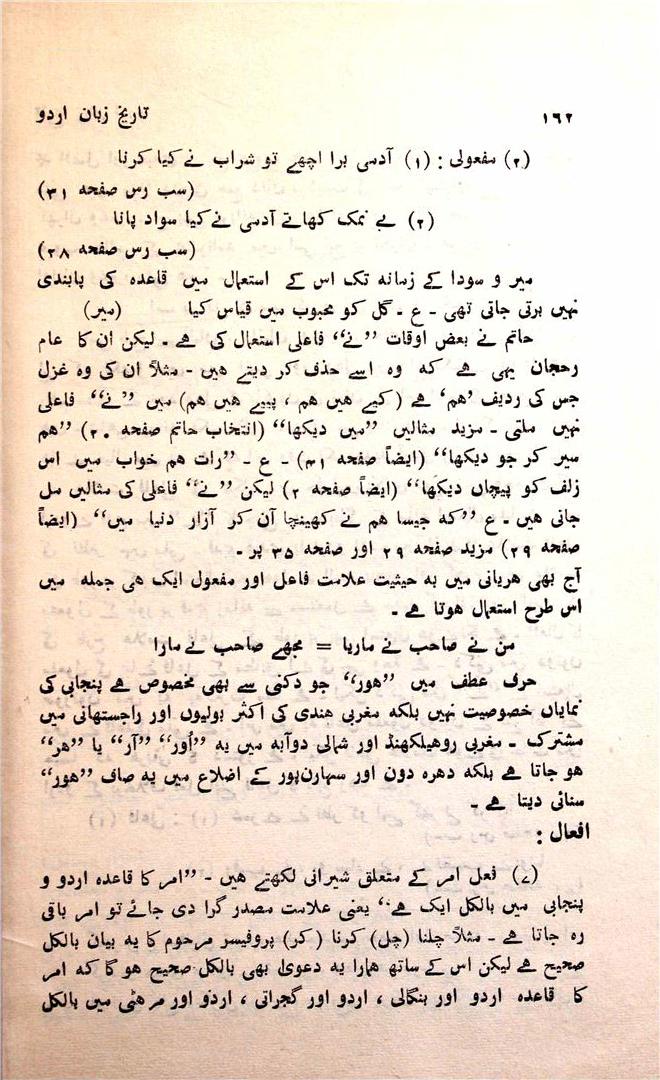 ۱۶۲ تاریخ زبان اردو
(۲) مفعولی : (۱) آدمی برا اچھے تو شراب نے کیا کرنا
(سب رس صفحہ ۳۱)
(۲) بے نمک کھاتے آدمی نے کیا سواد پانا
(سب رس صفحہ ۲۸)
میر و سودا کے زمانہ تک اس کے استعمال میں قاعدہ کی پابندی
نہیں برتی جاتی تھی ۔ ع ۔ گل کو محبوب میں قیاس کیا (میر)
حاتم نے بعض اوقات ”نے“ فاعلی استعمال کی ہے ۔ لیکن ان کا عام
رحجان یہی ہے کہ وہ اسے حذف کر دیتے ہیں ۔ مثلاً ان کی وہ غزل
جس کی ردیف ’ہم‘ ہے (کیے ہیں ہم ، پیے ہیں ہم) میں ”نے“ فاعلی
نہیں ملتی ۔ مزید مثالیں ”میں دیکھا“ (انتخاب حاتم صفحہ ۲۰) ”ہم
سیر کر جو دیکھا“ (ایضاً صفحہ ۳۱) ۔ ع ۔ ”رات ہم خواب میں اس
زلف کو پیچاں دیکھا“ (ایضاً صفحہ ۲) لیکن ”نے“ فاعلی کی مثالیں مل
جاتی ہیں ۔ ع ”کہ جیسا ہم نے کھینچا آن کر آزار دنیا میں“ (ایضاً
صفحہ ۲۹) مزید صفحہ ۲۹ اور صفحہ ۳۵ پر ۔
آج بھی ہریانی میں بہ حیثیت علامت فاعل اور مفعول ایک ہی جملہ میں
اس طرح استعمال ہوتا ہے ۔
من نے صاحب نے ماریا = مجھے صاحب نے مارا
حرف عطف میں ”ہور“ جو دکنی سے بھی مخصوص ہے پنجابی کی
نمایاں خصوصیت نہیں بلکہ مغربی ہندی کی اکثر بولیوں اور راجستھانی میں
مشترک ۔ مغربی روہیلکھنڈ اور شمالی دوآبہ میں یہ ”اُور“ ”آر“ یا ”ہر“
ہو جاتا ہے بلکہ دہرہ دون اور سہارن‌پور کے اضلاع میں یہ صاف ”ہور“
سنائی دیتا ہے ۔
افعال :
(۷) فعل امر کے متعلق شیرانی لکھتے ہیں ۔ ”امر کا قاعدہ اردو و
پنجابی میں بالکل ایک ہے“ یعنی علامت مصدر گرا دی جائے تو امر باقی
رہ جاتا ہے ۔ مثلاً چلنا (چل) کرنا (کر) پروفیسر مرحوم کا یہ بیان بالکل
صحیح ہے لیکن اس کے ساتھ ہمارا یہ دعویٰ بھی بالکل صحیح ہو گا کہ امر
کا قاعدہ اردو اور بنگالی ، اردو اور گجراتی ، اردو اور مرہٹی میں بالکل